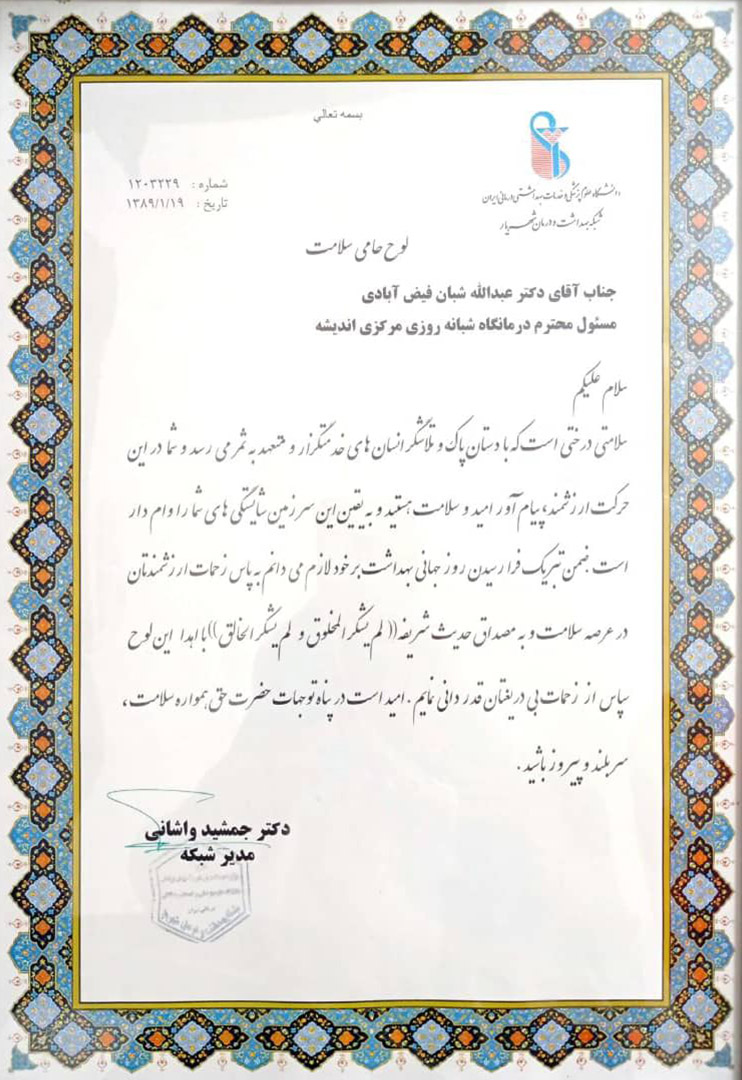 بسمه تعالی
دانشگاه علوم پزشکی و خدمات بهداشتی درمانی ایران
شبکه بهداشت و درمان شهریار
شماره : ۱۲۰۳۲۲۹
تاریخ : ۱۳۸۹/۱/۱۹
لوح حامی سلامت
جناب آقای دکتر عبدالله شبان فیض آبادی
مسئول محترم درمانگاه شبانه روزی مرکزی اندیشه
سلام علیکم
سلامتی درختی است که با دستان پاک و تلاشگر انسان های خدمتگزار و متعهد به ثمر می رسد و شما در این
حرکت ارزشمند، پیام آور امید و سلامت هستید و به یقین این سرزمین شایستگی های شما را وام دار
است .ضمن تبریک فرا رسیدن روز جهانی بهداشت بر خود لازم می دانم به پاس زحمات ارزشمندتان
در عرصه سلامت و به مصداق حدیث شریفه ((لم یشکر المخلوق و لم یشکر الخالق)) با اهدا این لوح
سپاس از زحمات بی دریغتان قدر دانی نمایم . امید است در پناه توجهات حضرت حق همواره سلامت ،
سربلند و پیروز باشید .
دکتر جمشید واشانی
مدیر شبکه
شبکه بهداشت و درمان شهریار